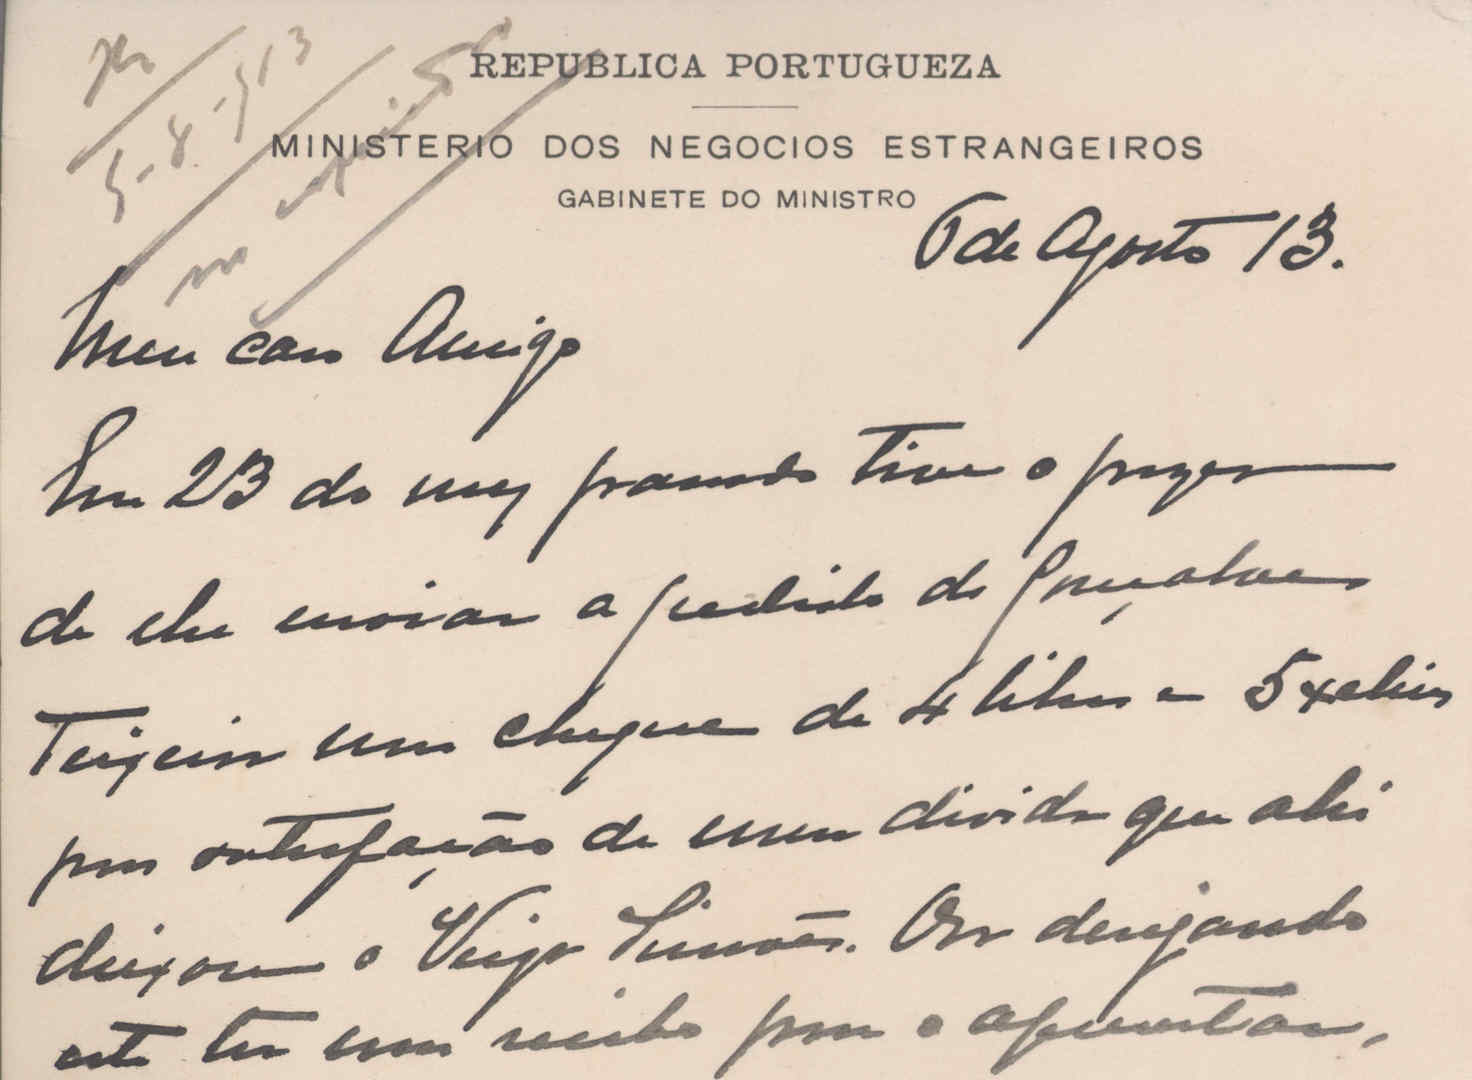 REPUBLICA PORTUGUEZA
MINISTERIO DOS NEGOCIOS ESTRANGEIROS
GABINETE DO MINISTRO
5-8-913
6 de Agosto 13.
Meu caro Amigo
Em 23 do mez passado tive o prazer
de lhe enviar a pedido do Gonçalves
Teixeira um cheque de 4 libras e 5 xelins
para satisfação de uma divida que ahi
deixou o Veiga Simões. Ora desejando
este ter um recibo para o apresentar,